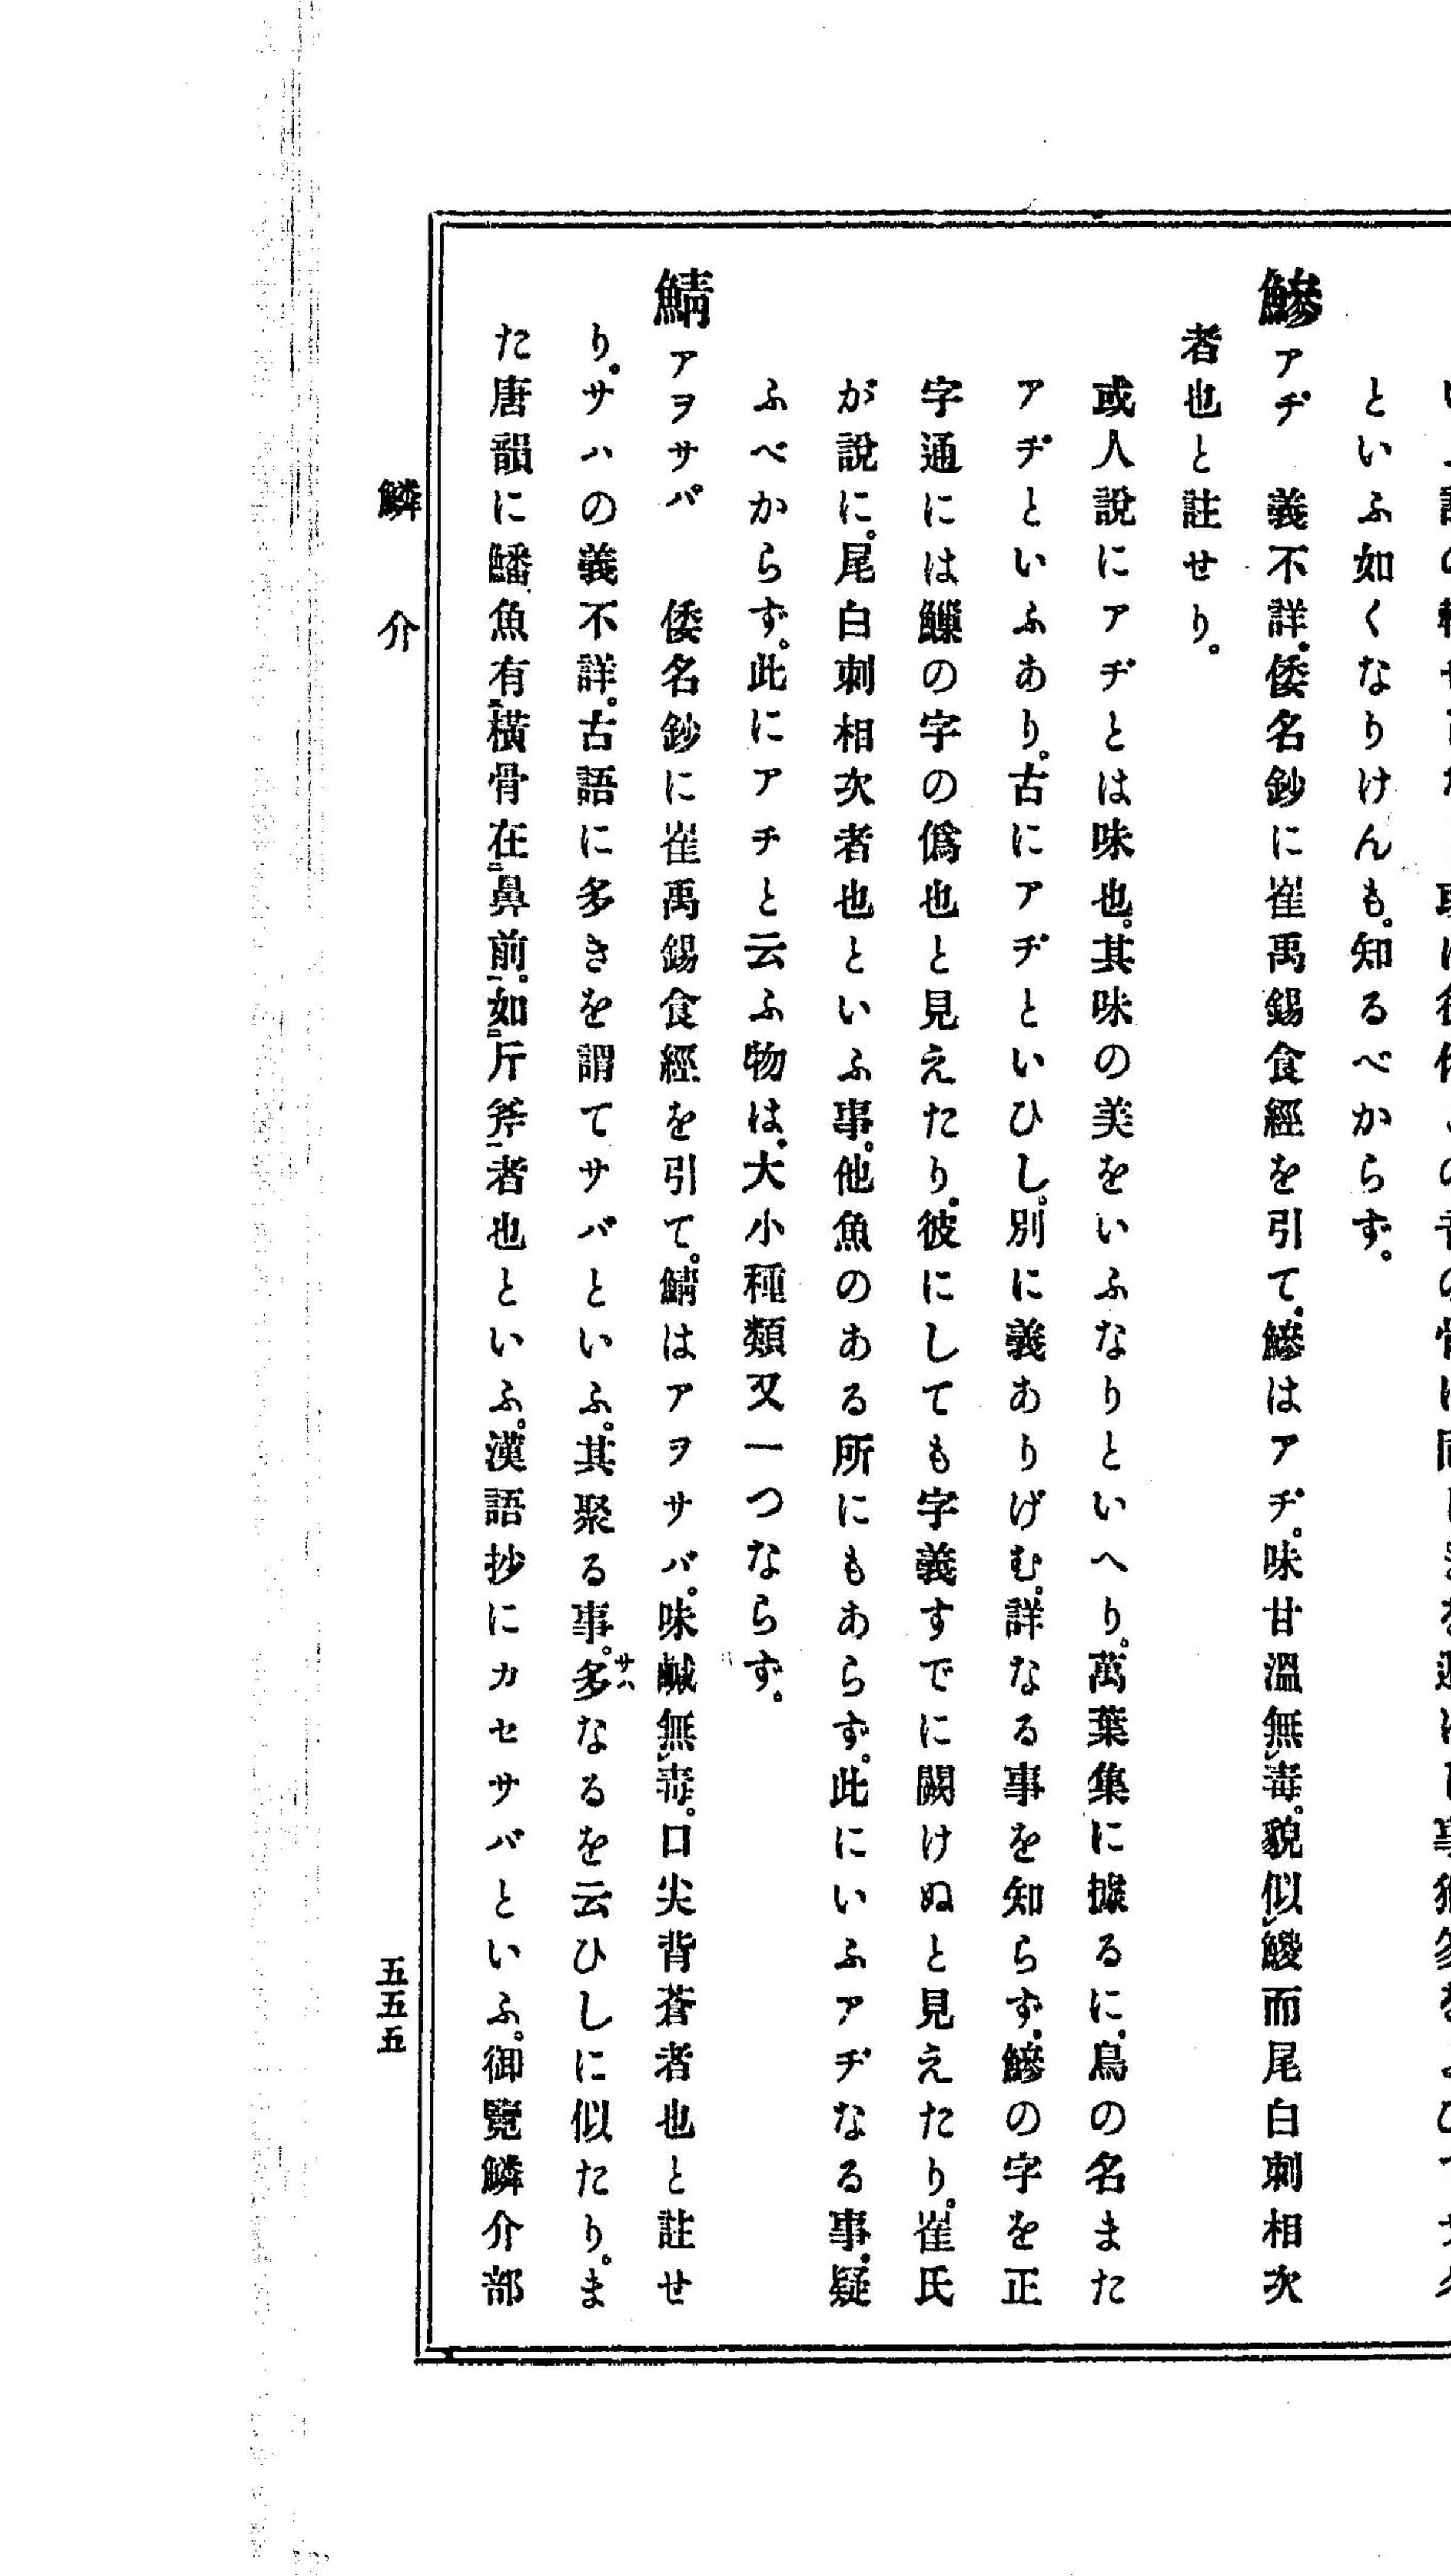 といふ如くなりけんも。知るべからず。
鰺アヂ　義不詳。倭名鈔に崔禹錫食經を引て。鰺はアヂ。味甘溫無毒。貌似鯼而尾白刺相次
者也と註せり。
或人說にアヂとは味也。其味の美をいふなりといへり。萬葉集に據るに。鳥の名また
アヂといふあり。古にアヂといひし。別に義ありげむ。詳なる事を知らず。鰺の字を正
字通には鱢の字の僞也と見えたり。彼にしても字義すでに闕けぬと見えたり。崔氏
が說に。尾白刺相次者也といふ事。他魚のある所にもあらず。此にいふアヂなる事。疑
ふべからず。此にアチと云ふ物は。大小種類又一つならず。
鯖アヲサバ　倭名鈔に崔禹錫食經を引て。鯖はアヲサバ。味鹹無毒。口尖背蒼者也と註せ
り。サハの義不詳。古語に多きを謂てサバといふ。其聚る事。多サハなるを云ひしに似たり。ま
た唐韻に鱕魚有橫骨在鼻前。如斤斧者也といふ。漢語抄にカセサバといふ。御覽鱗介部
鱗介
五五五